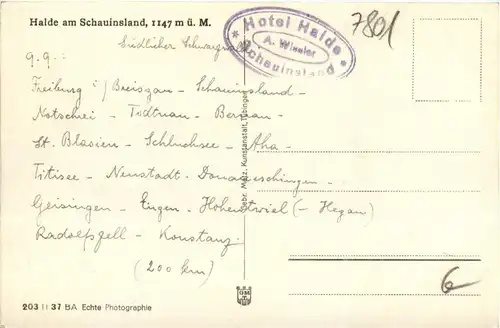 Halde am Schauinsland, 1147 m ü. M.
7801
Hotel Halde
A. Wissler
Schauinsland
Südlicher Schwarzwald
9.9.:
Freiburg i/ Breisgau - Schauinsland -
Notschrei - Todtnau - Bernau -
St. Blasien - Schluchsee - Aha -
Titisee - Neustadt - Donaueschingen -
Geisingen - Engen - Hohentwiel (- Hegau)
Radolfzell - Konstanz.
(200 km)
Gebr. Metz, Kunstanstalt, Tübingen
GMT
6
203 11 37 BA Echte Photographie